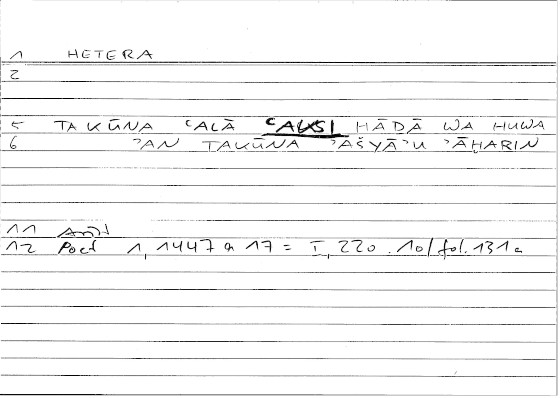 1 HETERA
2
5 TAKŪNA ʿALĀ ʿAKSI HĀḎĀ WA HUWA
6 ʾAN TAKŪNA ʾAŠYĀʾU ʾĀḪARIN
11 Arist
12 Poet 1, 1447 a 17 = I, 220 .10/fol. 131a